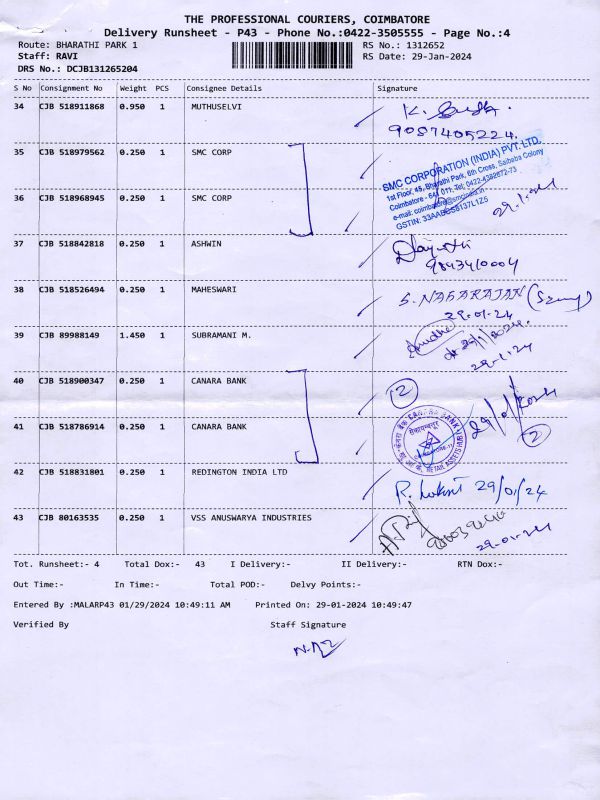 THE PROFESSIONAL COURIERS, COIMBATORE
Delivery Runsheet - P43 - Phone No.:0422-3505555 - Page No.:4
Route: BHARATHI PARK 1 RS No.: 1312652
Staff: RAVI RS Date: 29-Jan-2024
DRS No.: DCJB131265204
S No Consignment No Weight PCS Consignee Details Signature
34 CJB 518911868 0.950 1 MUTHUSELVI K.
9087405224.
35 CJB 518979562 0.250 1 SMC CORP
SMC CORPORATION (INDIA) PVT. LTD.
1st Floor, 45, Bharathi Park, 6th Cross, Saibaba Colony
Coimbatore - 641 011. Tel: 0422-4382872-73
e-mail: coimbatore@smcindia.in
GSTIN: 33AABCS8137L1Z5
36 CJB 518968945 0.250 1 SMC CORP 29.1.24
37 CJB 518842818 0.250 1 ASHWIN
9843410004
38 CJB 518526494 0.250 1 MAHESWARI S. NAGARAJAN
29.01.24
39 CJB 89988149 1.450 1 SUBRAMANI M.
29.1.24
40 CJB 518900347 0.250 1 CANARA BANK 2
41 CJB 518786914 0.250 1 CANARA BANK
CANARA BANK
RETAIL ASSETS HUB
2
42 CJB 518831801 0.250 1 REDINGTON INDIA LTD R. 29/01/24
43 CJB 80163535 0.250 1 VSS ANUSWARYA INDUSTRIES
29.01.24
Tot. Runsheet:- 4 Total Dox:- 43 I Delivery:- II Delivery:- RTN Dox:-
Out Time:- In Time:- Total POD:- Delvy Points:-
Entered By :MALARP43 01/29/2024 10:49:11 AM Printed On: 29-01-2024 10:49:47
Verified By Staff Signature